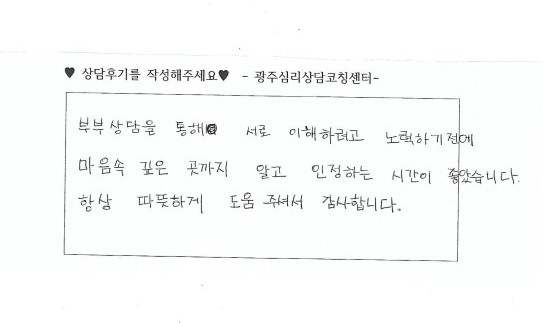 ♥ 상담후기를 작성해주세요♥ - 광주심리상담코칭센터-
부부상담을 통해 서로 이해하려고 노력하기전에
마음속 깊은 곳까지 알고 인정하는 시간이 좋았습니다.
항상 따뜻하게 도움 주셔서 감사합니다.